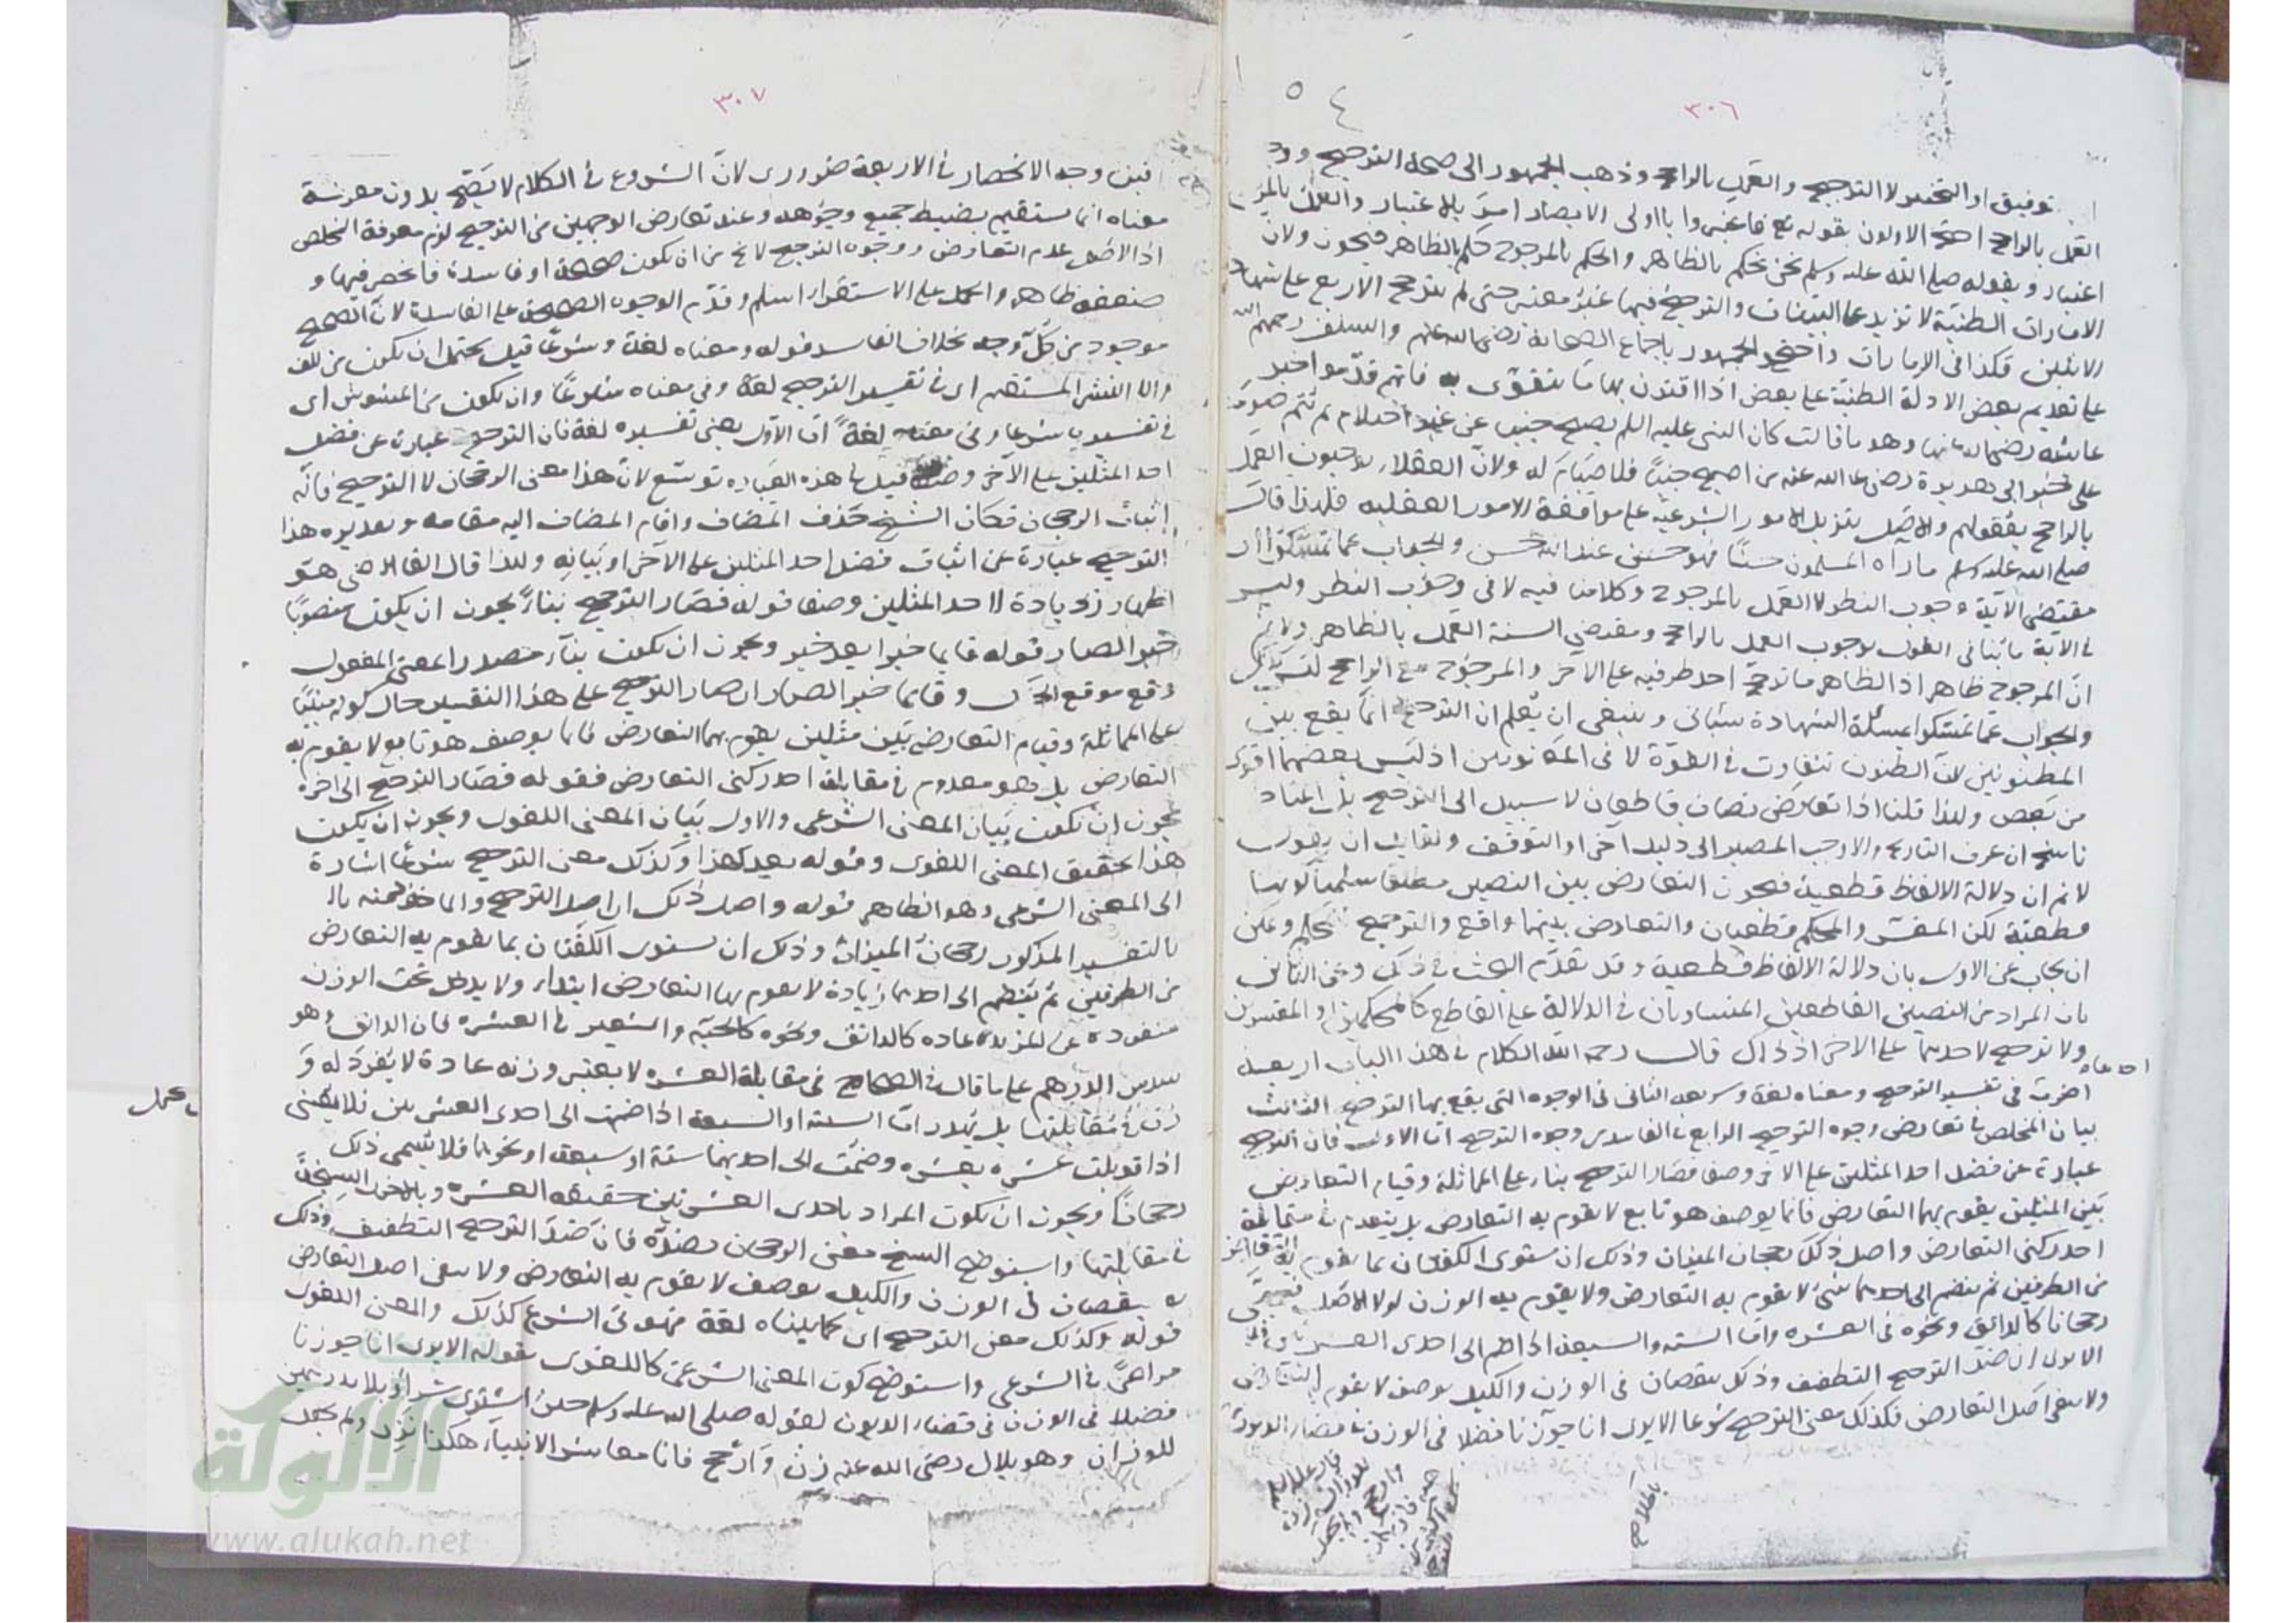 ٣٠٦
توفيق او التخيير لا الترجيح والعمل بالراجح وذهب الجمهور الى صحة الترجيح و
العمل بالراجح احتج الاولون بقوله تع فاعتبروا يا اولى الابصار امر بالاعتبار والعمل بالمرجوح
اعتبار وبقوله صلى الله عليه وسلم نحن نحكم بالظاهر والحكم بالمرجوح حكم بالظاهر فيجوز ولان
الامارات الظنية لا تزيد على البينات والترجيح فيها غير معتبر حتى لم يترجح الاربع على شهادة
الاثنين فكذا فى الامارات واحتج الجمهور باجماع الصحابة رضى الله عنهم والسلف رحمهم الله
على تقديم بعض الادلة الظنية على بعض اذا اقترن بها ما يتقوى به فانهم قدموا خبر
عائشة رضى الله عنها وهو ما قالت كان النبى عليه السلم يصبح جنبا من غير احتلام ثم يتم صومه
على خبر ابى هريرة رضى الله عنه من اصبح جنبا فلا صيام له ولان العقلاء يوجبون العمل
بالراجح بعقولهم والاصل تنزيل الامور الشرعية على موافقة الامور العقلية فلهذا قال
صلى الله عليه وسلم ما رآه المسلمون حسنا فهو حسن عند الله حسن والجواب عما تمسكوا ان
مقتضى الآية وجوب النظر لا العمل بالمرجوح وكلامنا فيه لا فى وجوب النظر وليس
فى الآية ما ينافى القول بوجوب العمل بالراجح ومقتضى السنة العمل بالظاهر ولا نم
ان المرجوح ظاهر اذ الظاهر ما ترجح احد طرفيه على الاخر والمرجوح مع الراجح ليس كذلك
والجواب عما تمسكوا بمسئلة الشهادة سيأتى وينبغى ان يعلم ان الترجيح انما يقع بين
المظنونين لان الظنون تتفاوت فى القوة لا فى المعلومين اذ ليس بعضهما اقوى
من بعض ولذا قلنا اذا تعارض نصان قاطعان لا سبيل الى الترجيح بل المتأخر
ناسخ ان عرف التاريخ والا وجب المصير الى دليل آخر او التوقف ولقائل ان يقول
لا نم ان دلالة الالفاظ قطعية فيجوز التعارض بين النصين مطلقا سلمنا كونها
قطعية لكن المفسر والمحكم قطعيان والتعارض بينهما واقع والترجيح محكم ويمكن
ان يجاب عن الاول بان دلالة الالفاظ قطعية وقد تقدم البحث فى ذلك وعن الثانى
بان المراد من النصين القاطعين المتساويان فى الدلالة على القاطع كالمحكمين او المفسرين
ولا ترجيح لاحدهما على الاخر اذ ذاك قال رحمه الله الكلام فى هذا الباب اربعة
احدها
اضرب فى تفسير الترجيح ومعناه لغة وشريعة الثانى فى الوجوه التى يقع بها الترجيح الثالث
بيان المخلص فى تعارض وجوه الترجيح الرابع فى الفاسد من وجوه الترجيح اما الاول فان الترجيح
عبارة عن فضل احد المثلين على الاخر وصفا فصار الترجيح بناء على المماثلة وقيام التعارض
بين المثلين يقوم بهما التعارض قائما بوصف هو تابع لا يقوم به التعارض بل ينعدم فى مقابلة
احد ركنى التعارض واصل ذلك رجحان الميزان وذلك ان يستوى الكفتان بما يقوم به التعارض
من الطرفين ثم ينضم الى احدهما شئ لا يقوم به التعارض ولا يقوم به الوزن لولا الاصل فيسمى
رجحانا كالدانق ونحوه فى العشرة واما الستة والسبعة اذا ضم الى احدى العشرتين فلا
الا يرى ان ضد الترجيح التطفيف وذلك بنقصان فى الوزن والكيل بوصف لا يقوم به التعارض
ولا ينفى اصل التعارض فكذلك معنى الترجيح شرعا الا يرى انا جوزنا فضلا فى الوزن فى قضاء الديون
٣٠٧
فبين وجه الانحصار فى الاربعة ضرورى لان الشروع فى الكلام لا يتضح بدون معرفة
معناه انما يستقيم بضبط جميع وجوهه وعند تعارض الوجهين من الترجيح لزم معرفة المخلص
اذ الاصل عدم التعارض ووجوه الترجيح لا تخ من ان تكون صحيحة او فاسدة فانحصر فيها و
ضعفه ظاهر والحمل على الاستقراء اسلم وقدم الوجوه الصحيحة على الفاسدة لان الصحيح
موجود من كل وجه بخلاف الفاسد قوله ومعناه لغة وشرعا قيل يحتمل ان يكون من اللف
والنشر المستقيم اى فى تفسير الترجيح لغة وفى معناه شرعا وان يكون من المشوش اى
فى تفسيره شرعا وفى معناه لغة اما الاول يعنى تفسيره لغة فان الترجيح عبارة عن فضل
احد المثلين على الآخر وصفا قيل فى هذه العبارة توسع لان هذا معنى الرجحان لا الترجيح فانه
اثبات الرجحان فكان الشيخ حذف المضاف واقام المضاف اليه مقامه وتقديره هذا
الترجيح عبارة عن اثبات فضل احد المثلين على الآخر او بيانه ولذا قال القاضى هو
اظهار زيادة لاحد المثلين وصفا قوله فصار الترجيح بناء يجوز ان يكون منصوبا
خبر الصار قوله قائما خبرا بعد خبر ويجوز ان يكون بناء مصدرا لمعنى المفعول
وقع موقع الحال وقائما خبر الصار اى صار الترجيح على هذا التفسير حال كونه مبنيا
على المماثلة وقيام التعارض بين مثلين يقوم بهما التعارض قائما بوصف هو تابع لا يقوم به
التعارض بل هو معدوم فى مقابلة احد ركنى التعارض فقوله فصار الترجيح الى اخره
يجوز ان يكون بيان المعنى الشرعى والاول بيان المعنى اللغوى ويجوز ان يكون
هذا تحقيق المعنى اللغوى وقوله بعد هذا وكذلك معنى الترجيح شرعا اشارة
الى المعنى الشرعى وهو الظاهر قوله واصل ذلك اى اصل الترجيح والماخوذ منه
بالتفسير المذكور رجحان الميزان وذلك ان يستوى الكفتان بما يقوم به التعارض
من الطرفين ثم ينضم الى احدهما زيادة لا يقوم بها التعارض ابتداء ولا يدخل تحت الوزن
منفردة عن المزيد عليه عادة كالدانق ونحوه كالحبة والشعير فى العشرة فان الدانق وهو
سدس الدرهم على ما قال فى الصحاح فى مقابلة العشرة لا يعتبر وزنه عادة لا يفرد له و
زن فى مقابلتها بل يهدر اما الستة او السبعة اذا ضمت الى احدى العشرتين فلا يعنى
اذا قوبلت عشرة بعشرة وضمت الى احديهما ستة او سبعة او نحوهما فلا يسمى ذلك
رجحانا ويجوز ان يكون المراد باحدى العشرتين حقيقة العشرة وبالاخرى السنجة
فى مقابلتها واستوضح الشيخ معنى الرجحان بضده فان ضد الترجيح التطفيف وذلك
بنقصان فى الوزن والكيل بوصف لا يقوم به التعارض ولا ينفى اصل التعارض
قوله وكذلك معنى الترجيح اى كما بيناه لغة فهو فى الشرع كذلك والمعنى اللغوى
مراعى فى الشرعى واستوضح كون المعنى الشرعى كاللغوى بقوله الا يرى انا جوزنا
فضلا فى الوزن فى قضاء الديون لقوله صلى الله عليه وسلم حين اشترى سراويلا بدرهمين
للوزان وهو بلال رضى الله عنه زن وارجح فانا معاشر الانبياء هكذا نزن ولم يجعل
الألوكة
www.alukah.net